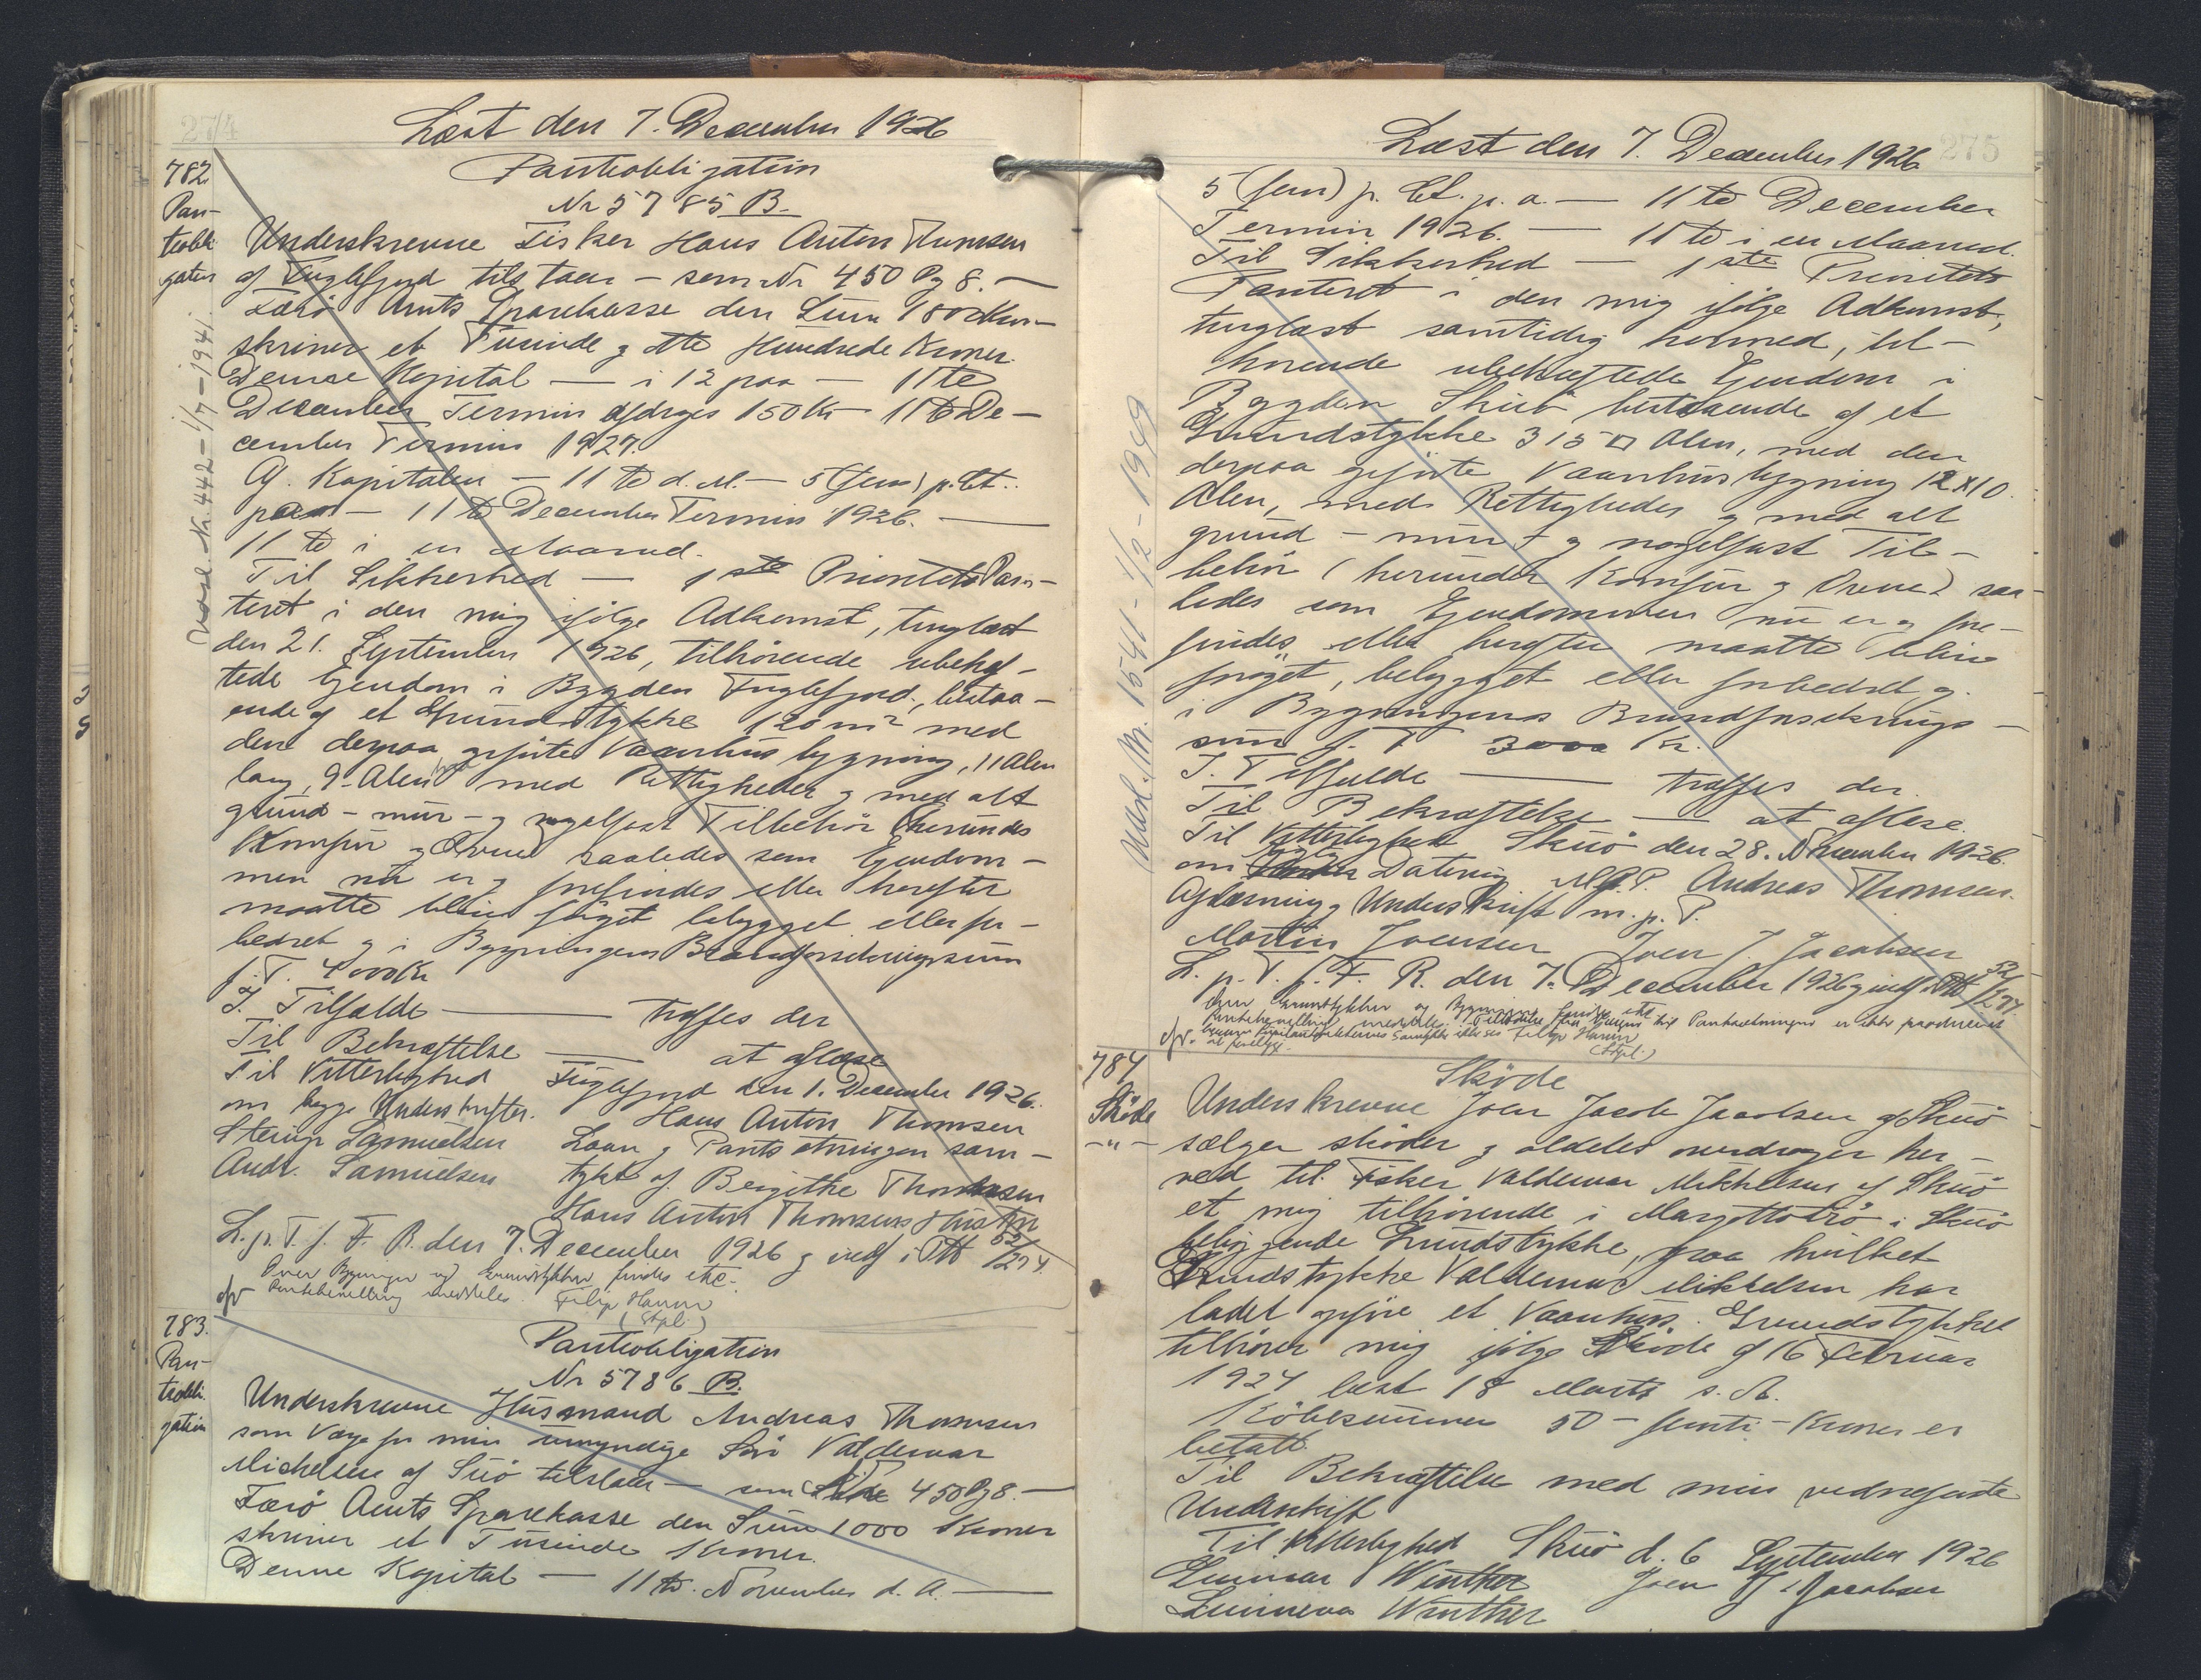 274
Læst den 7. December 1926
782.
Pan-
teobli
gation
Pantiobligation
Nr 5785 B.
Underskrevne Fisker Hans Anton Thomsen
af Fuglefjord tilstaar – som Nr 450 Pg 8. —
Færø Amts Sparekasse den Sum 1800 Kr —
skriver et Tusinde og otte Hundrede Kroner.
Denne Kapital — i 12 paa — 11te
December Termin afdrages 150 Kr — 11te De-
cember Termin 1927.
Af Kapitalen — 11te d. M. — 5 (fem) p. Ct.
— 11te December Termin 1926. —
11te i en Maaned.
Til Sikkerhed — 1ste Prioritets Pan-
teret i den mig ifølge Adkomst, tinglæst
den 21. September 1926, tilhørende ubehæf-
tede Ejendom i Bygden Fuglefjord, bestaa-
ende af et Grundstykke 120 m² med
den derpaa opførte Vaanhusbygning, 11 Alen
lang, 9 Alen med Rettigheder og med alt
grund - mur - og nagelfast Tilbehør (herunder
Komfur og Ovne) saaledes som Ejendom-
men nu er og forefindes eller herefter
maatte blive føiget bebygget eller for-
bedret og i Bygningens Brandforsikringssum
f. T. 4000 Kr
I. Tilfælde — træffes der
Til Bekræftelse — at aflæse
Til Vitterlighed
om begge Underskrifter.
Samuelsen
Andr. Samuelsen
Fuglefjord den 1. December 1926.
Hans Anton Thomsen
Laan og Pantsætningen sam-
tykt af Bergithe Thomsen
Hans Anton Thomsens Hustru
L. p. T. f. F. R. den 7. December 1926 og indf. i Ptt 52/274.
Over Bygninger og Grundstykker findes etc.
Pantebenetling meddeles. Filip Hanno
(Stpl.)
Udsl. Nr. 442 – 1/7 – 1941.
783.
Pan-
teobli
gation
Panteobligation
Nr 5786 B.
Underskrevne Husmand Andreas Thomsen
som Værge for min umyndige Søn Valdemar
Michelsen af Skuø tilstaar — som 450 Pg 8. —
Færø Amts Sparekasse den Sum 1000 Kroner
skriver et Tusinde Kroner.
Denne Kapital — 11te November d. A. —
275
Læst den 7. December 1926
5 (fem) p. Ct. p. a. — 11te December
Termin 1926. — 11te i en Maaned.
Til Sikkerhed — 1ste Prioritets
Panteret i den mig ifølge Adkomst,
tinglæst samtidig hermed, til-
hørende ubehæftede Ejendom i
Bygden Skuø bestaaende af et
Grundstykke 315 □ Alen, med den
derpaa opførte Vaanhusbygning 12 x 10
Alen, med Rettigheder og med alt
grund - mur - og nagelfast Til-
behør (herunder Komfur og Ovne) saa-
ledes som Ejendommen nu er og fore-
findes eller herefter maatte blive
føiget, bebygget eller forbedret og
i Bygningens Brandforsikrings-
sum f. T. 3000 Kr.
I. Tilfælde — træffes der.
Til Bekræftelse — at aflæse.
Til Vitterlighed Skuø den 28. November 1926.
om Datering Andreas Thomsen.
Aflæsning og Underskrift m. p. T.
Martin Joensen Joen J. Jacobsen
L. p. T. f. F. R. den 7. December 1926 og indf. i Ptt 52/277
Over Grundstykker og Bygninger findes etc
Filip Hanno
(Stpl.)
Udsl. Nr. 1541 - 1/2 - 1949
784
Skøde
-"-
Skøde
Underskrevne Joen Jacob Jacobsen af Skuø
sælger skøder og aldeles overdrager her-
ved til Fisker Valdemar Mikkelsen af Skuø
et mig tilhørende i i Skuø
beliggende Grundstykke, paa hvilket
Grundstykke Valdemar Mikkelsen har
ladet opføre et Vaanhus. Grundstykket
tilhører mig ifølge Skøde af 16 Februar
1924 læst 18 Marts s. A.
Købesummen 50 – femti – Kroner er
betalt.
Til Bekræftelse med min vedneføiede
Underskrift
Til Vitterlighed Skuø d. 6 September 1926
Gunnar Winther Joen J. Jacobsen
Sunneva Winther